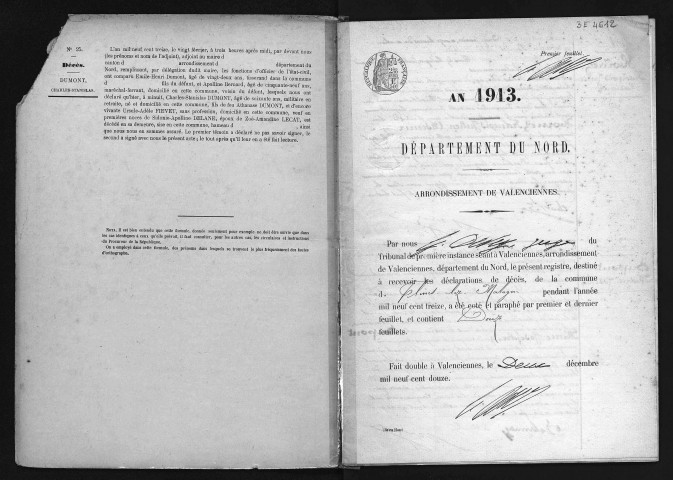 N° 25.
Décès.
DUMONT,
CHARLES-STANISLAS.
L'an mil neuf cent treize, le vingt février, à trois heures après midi, par devant nous
(les prénoms et nom de l'adjoint), adjoint au maire d
canton d arrondissement d département du
Nord, remplissant, par délégation dudit maire, les fonctions d'officier de l'état-civil,
ont comparu Emile-Henri Dumont, âgé de vingt-deux ans, tisserand dans la commune
d fils du défunt, et Apolline Bernard, âgé de cinquante-neuf ans,
maréchal-ferrant, domicilié en cette commune, voisin du défunt, lesquels nous ont
déclaré qu'hier, à minuit, Charles-Stanislas DUMONT, âgé de soixante ans, militaire en
retraite, né et domicilié en cette commune, fils de feu Albannne DUMONT, et d'encore
vivante Ursule-Adèle PIEVET, sans profession, domiciliée en cette commune, veuf en
premières noces de Sidonie-Apolline DELANE, époux de Zoé-Amandine LECAT, est
décédé en sa demeure, sise en cette commune, hameau d , ainsi
que nous nous en sommes assuré. Le premier témoin a déclaré ne pas savoir signer, le
second a signé avec nous le présent acte, le tout après qu'il leur en a été fait lecture.
NOTA. Il est bien entendu que cette formule, donnée seulement pour exemple, ne doit être suivie que dans
les cas identiques à ceux qu'elle prévoit. Il faut consulter, pour les autres cas, les circulaires et instructions
du Procureur de la République.
On a employé dans cette formule, des prénoms dans lesquels se trouvent le plus fréquemment des fautes
d'orthographe.
3E 4612
Premier feuillet.
AN 1913.
DÉPARTEMENT DU NORD.
ARRONDISSEMENT DE VALENCIENNES.
Par nous juge du
Tribunal de première instance séant à Valenciennes, arrondissement
de Valenciennes, département du Nord, le présent registre, destiné
à recevoir les déclarations de décès, de la commune
d pendant l'année
mil neuf cent treize, a été coté et paraphé par premier et dernier
feuillet, et contient Douze
feuillets.
Fait double à Valenciennes, le Deux décembre
mil neuf cent douze.